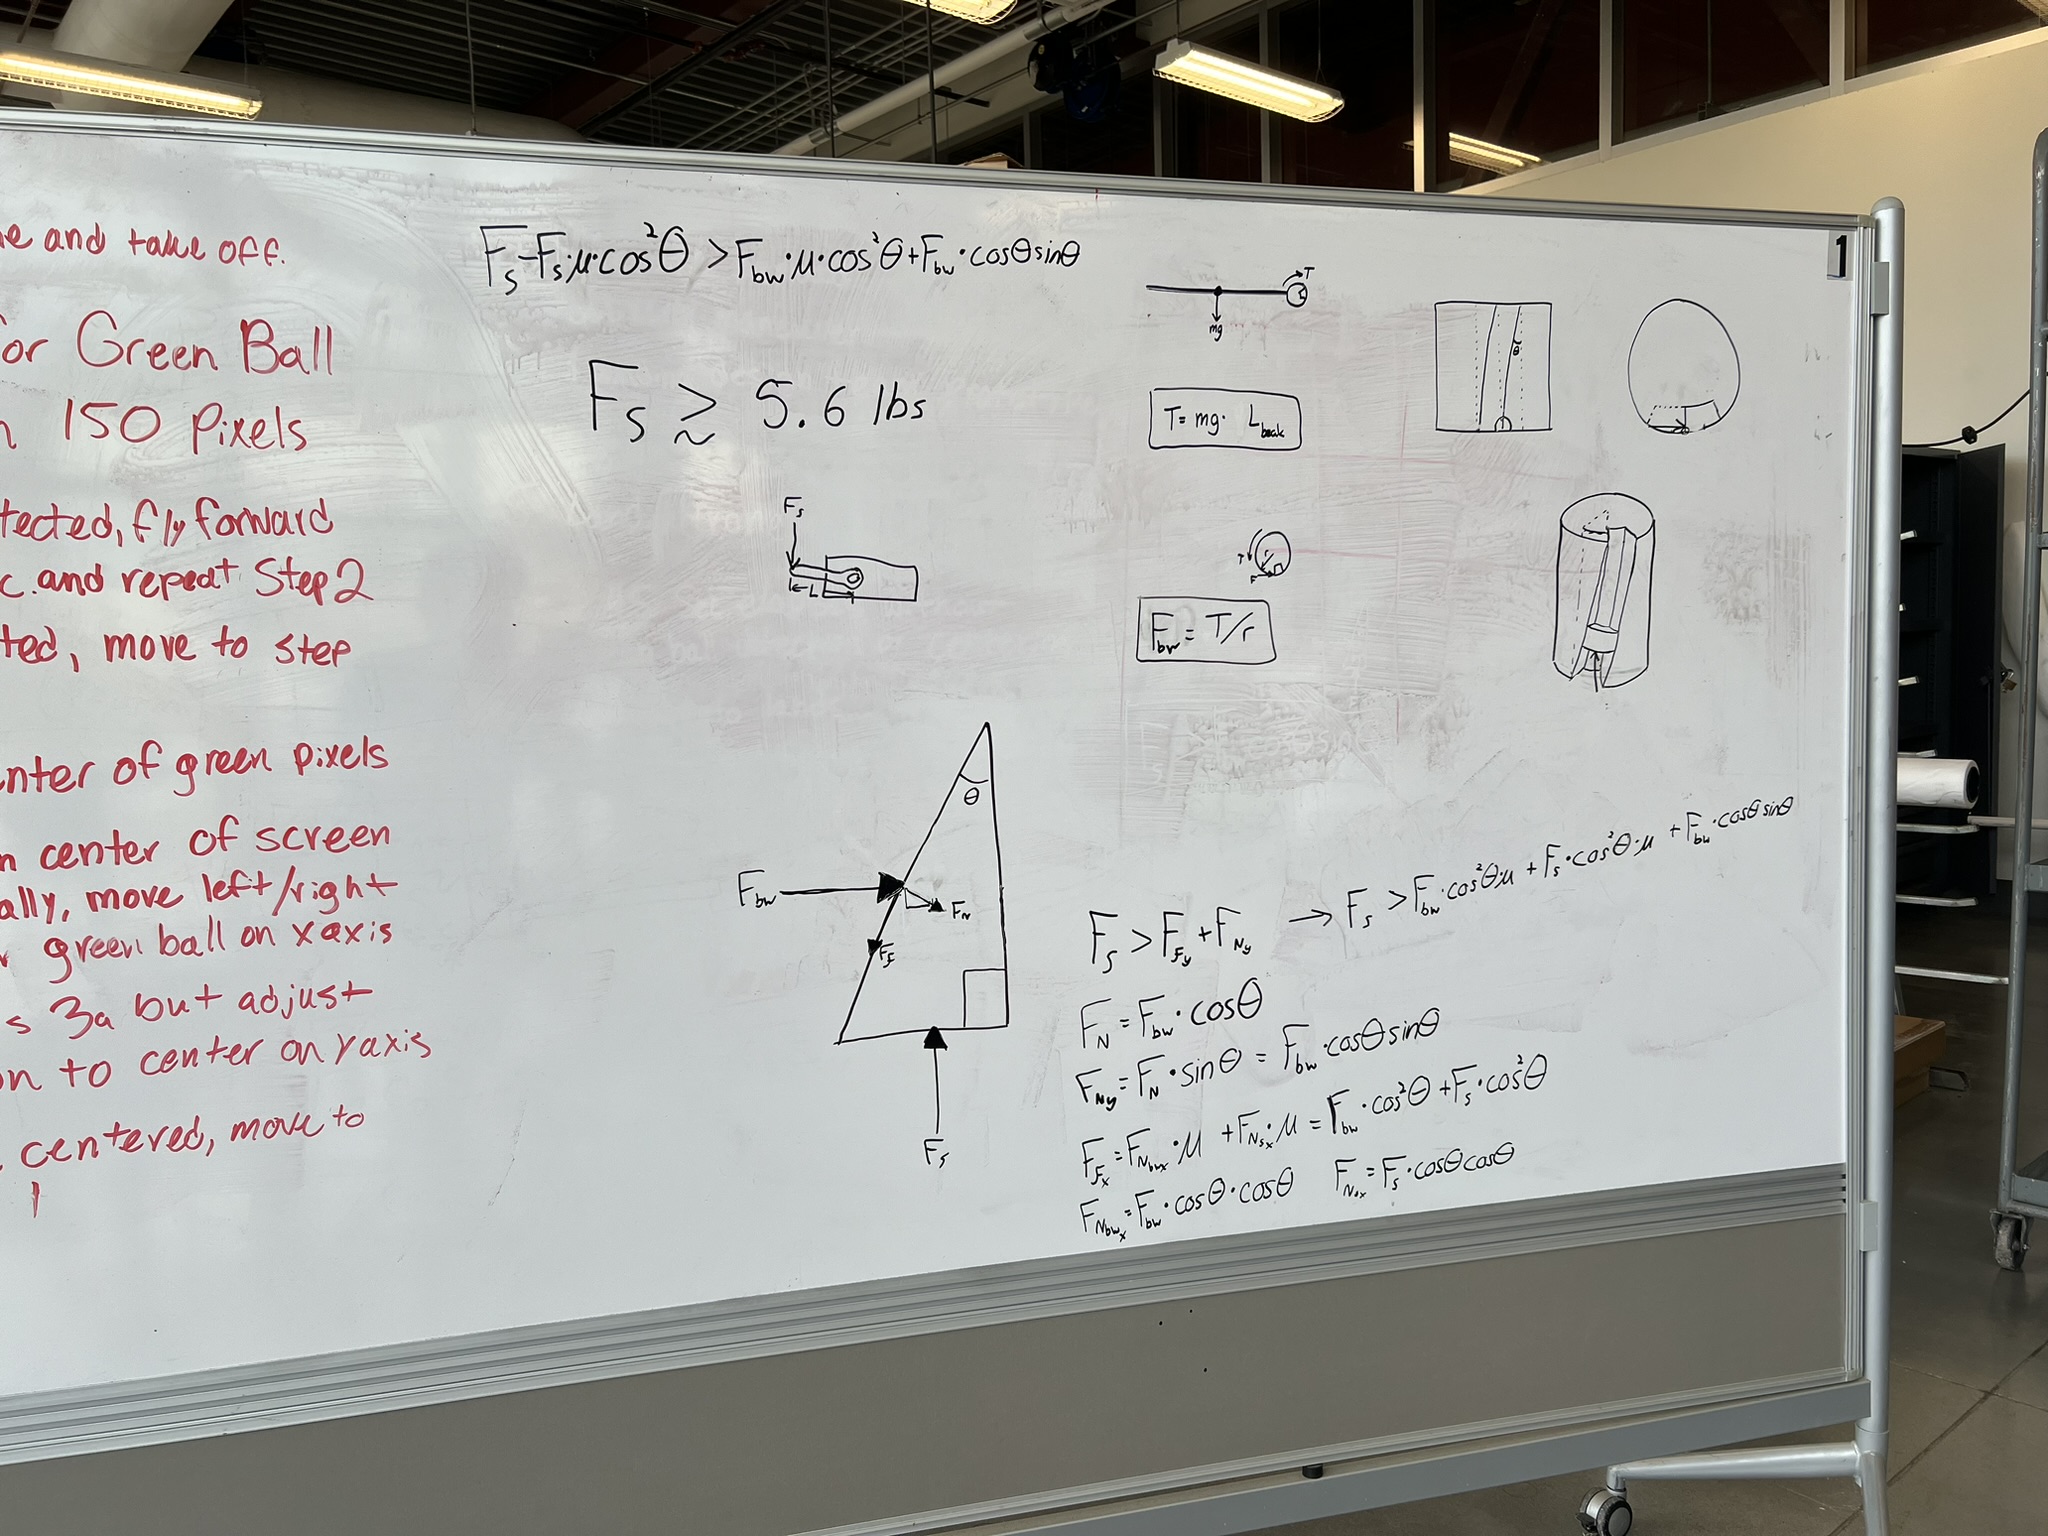 e and take off.
or Green Ball
n 150 Pixels
tected, fly forward
c. and repeat Step 2
ted, move to step
nter of green pixels
n center of screen
ally, move left/right
green ball on x axis
s 3a but adjust
on to center on y axis
centered, move to
1
F_s - F_s·μ·cos²θ > F_bw·μ·cos²θ + F_bw·cosθsinθ
F_s ≳ 5.6 lbs
F_s
L
T
mg
T = mg· L_beak
T
r
F
F_bw = T/r
θ
θ
F_bw
F_N
F_f
F_s
F_s > F_fy + F_Ny → F_s > F_bw·cos²θ·μ + F_s·cos²θ·μ + F_bw·cosθsinθ
F_N = F_bw·cosθ
F_Ny = F_N·sinθ = F_bw·cosθsinθ
F_fx = F_Nbwx·μ + F_Nsx·μ = F_bw·cos²θ + F_s·cos²θ
F_Nbwx = F_bw·cosθ·cosθ F_Nsx = F_s·cosθcosθ
1